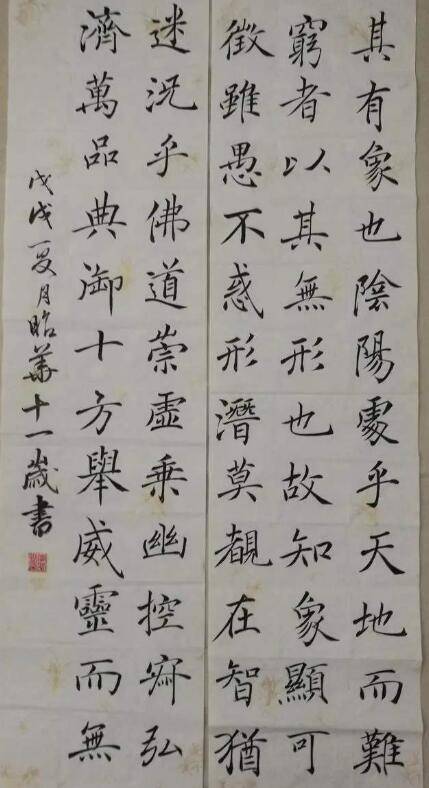 其有象也陰陽處乎天地而難
窮者以其無形也故知象顯可
徵雖愚不惑形潛莫覩在智猶
迷況乎佛道崇虛乘幽控寂弘
濟萬品典御十方舉威靈而無
戊戌夏月昭華十一歲書